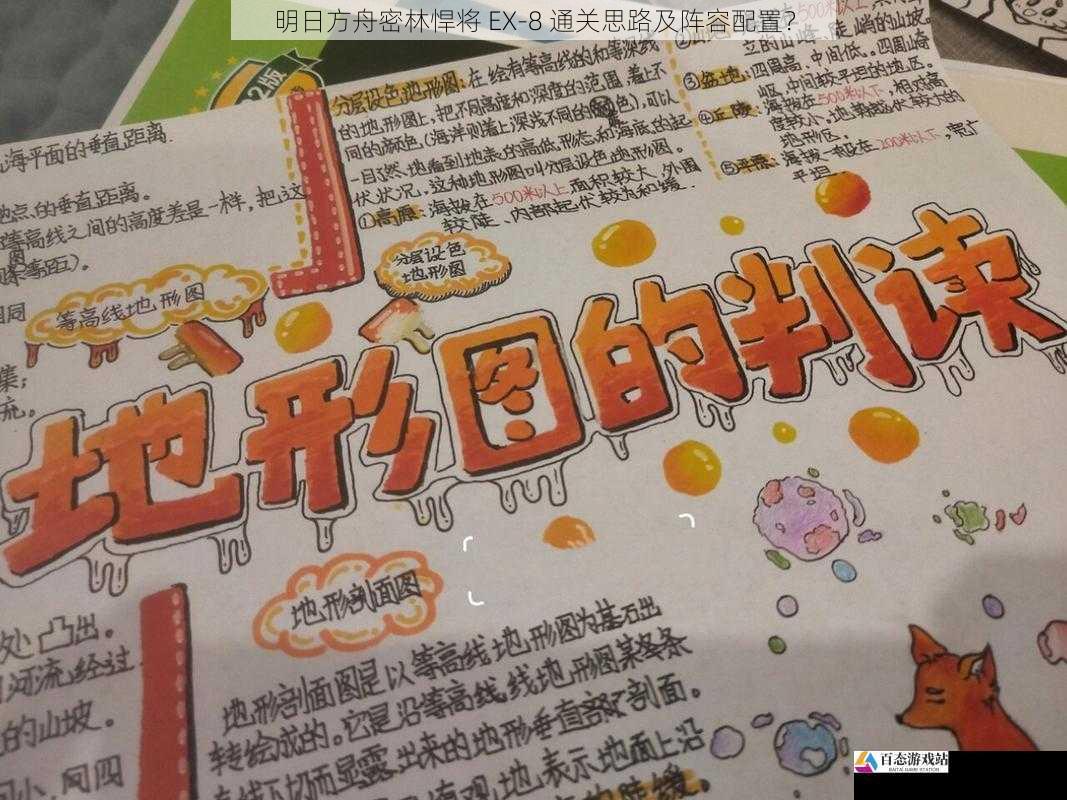 明日方舟密林悍将 EX-8 通关思路及阵容配置？
2版
海平面的垂直距离.
地点的垂直距离。
等高线之间的高度差是一样，把这
等高线地形图
分层设色地形图:在绘有等高线的和等深线
的地形图上，把不同高度和深度的范围,着上不
同的颜色,(海洋则着上深浅不同的
色),可以
一目了然地看到地表的高低形态和海底的起
伏状况。这种地形图叫分层设色地形图。
①高原:海拔在500米以上面积较大、外围
较陡、内部起伏较为和缓.
分层设色
地形图
立的山峰、陡峭的山坡.
③盆地:四周高、中间低。四周山
中间较平坦的地区。
④丘陵:海拔在500米以下,相对高
度较小,地
地形区.
⑤平原:海拔一般在200米以下,宽广
平坦
地形图的判读
集;
流。
处凸出。
河流经过
的山坡。
地形剖面图
地形剖面图是以等高线地形图为基石出
转绘成的。它是沿等高线地形图某条
直线下切而显露出来的地形垂直剖面。
直观地表示地面上沿
百态游戏站
BAITAI GAME STATION